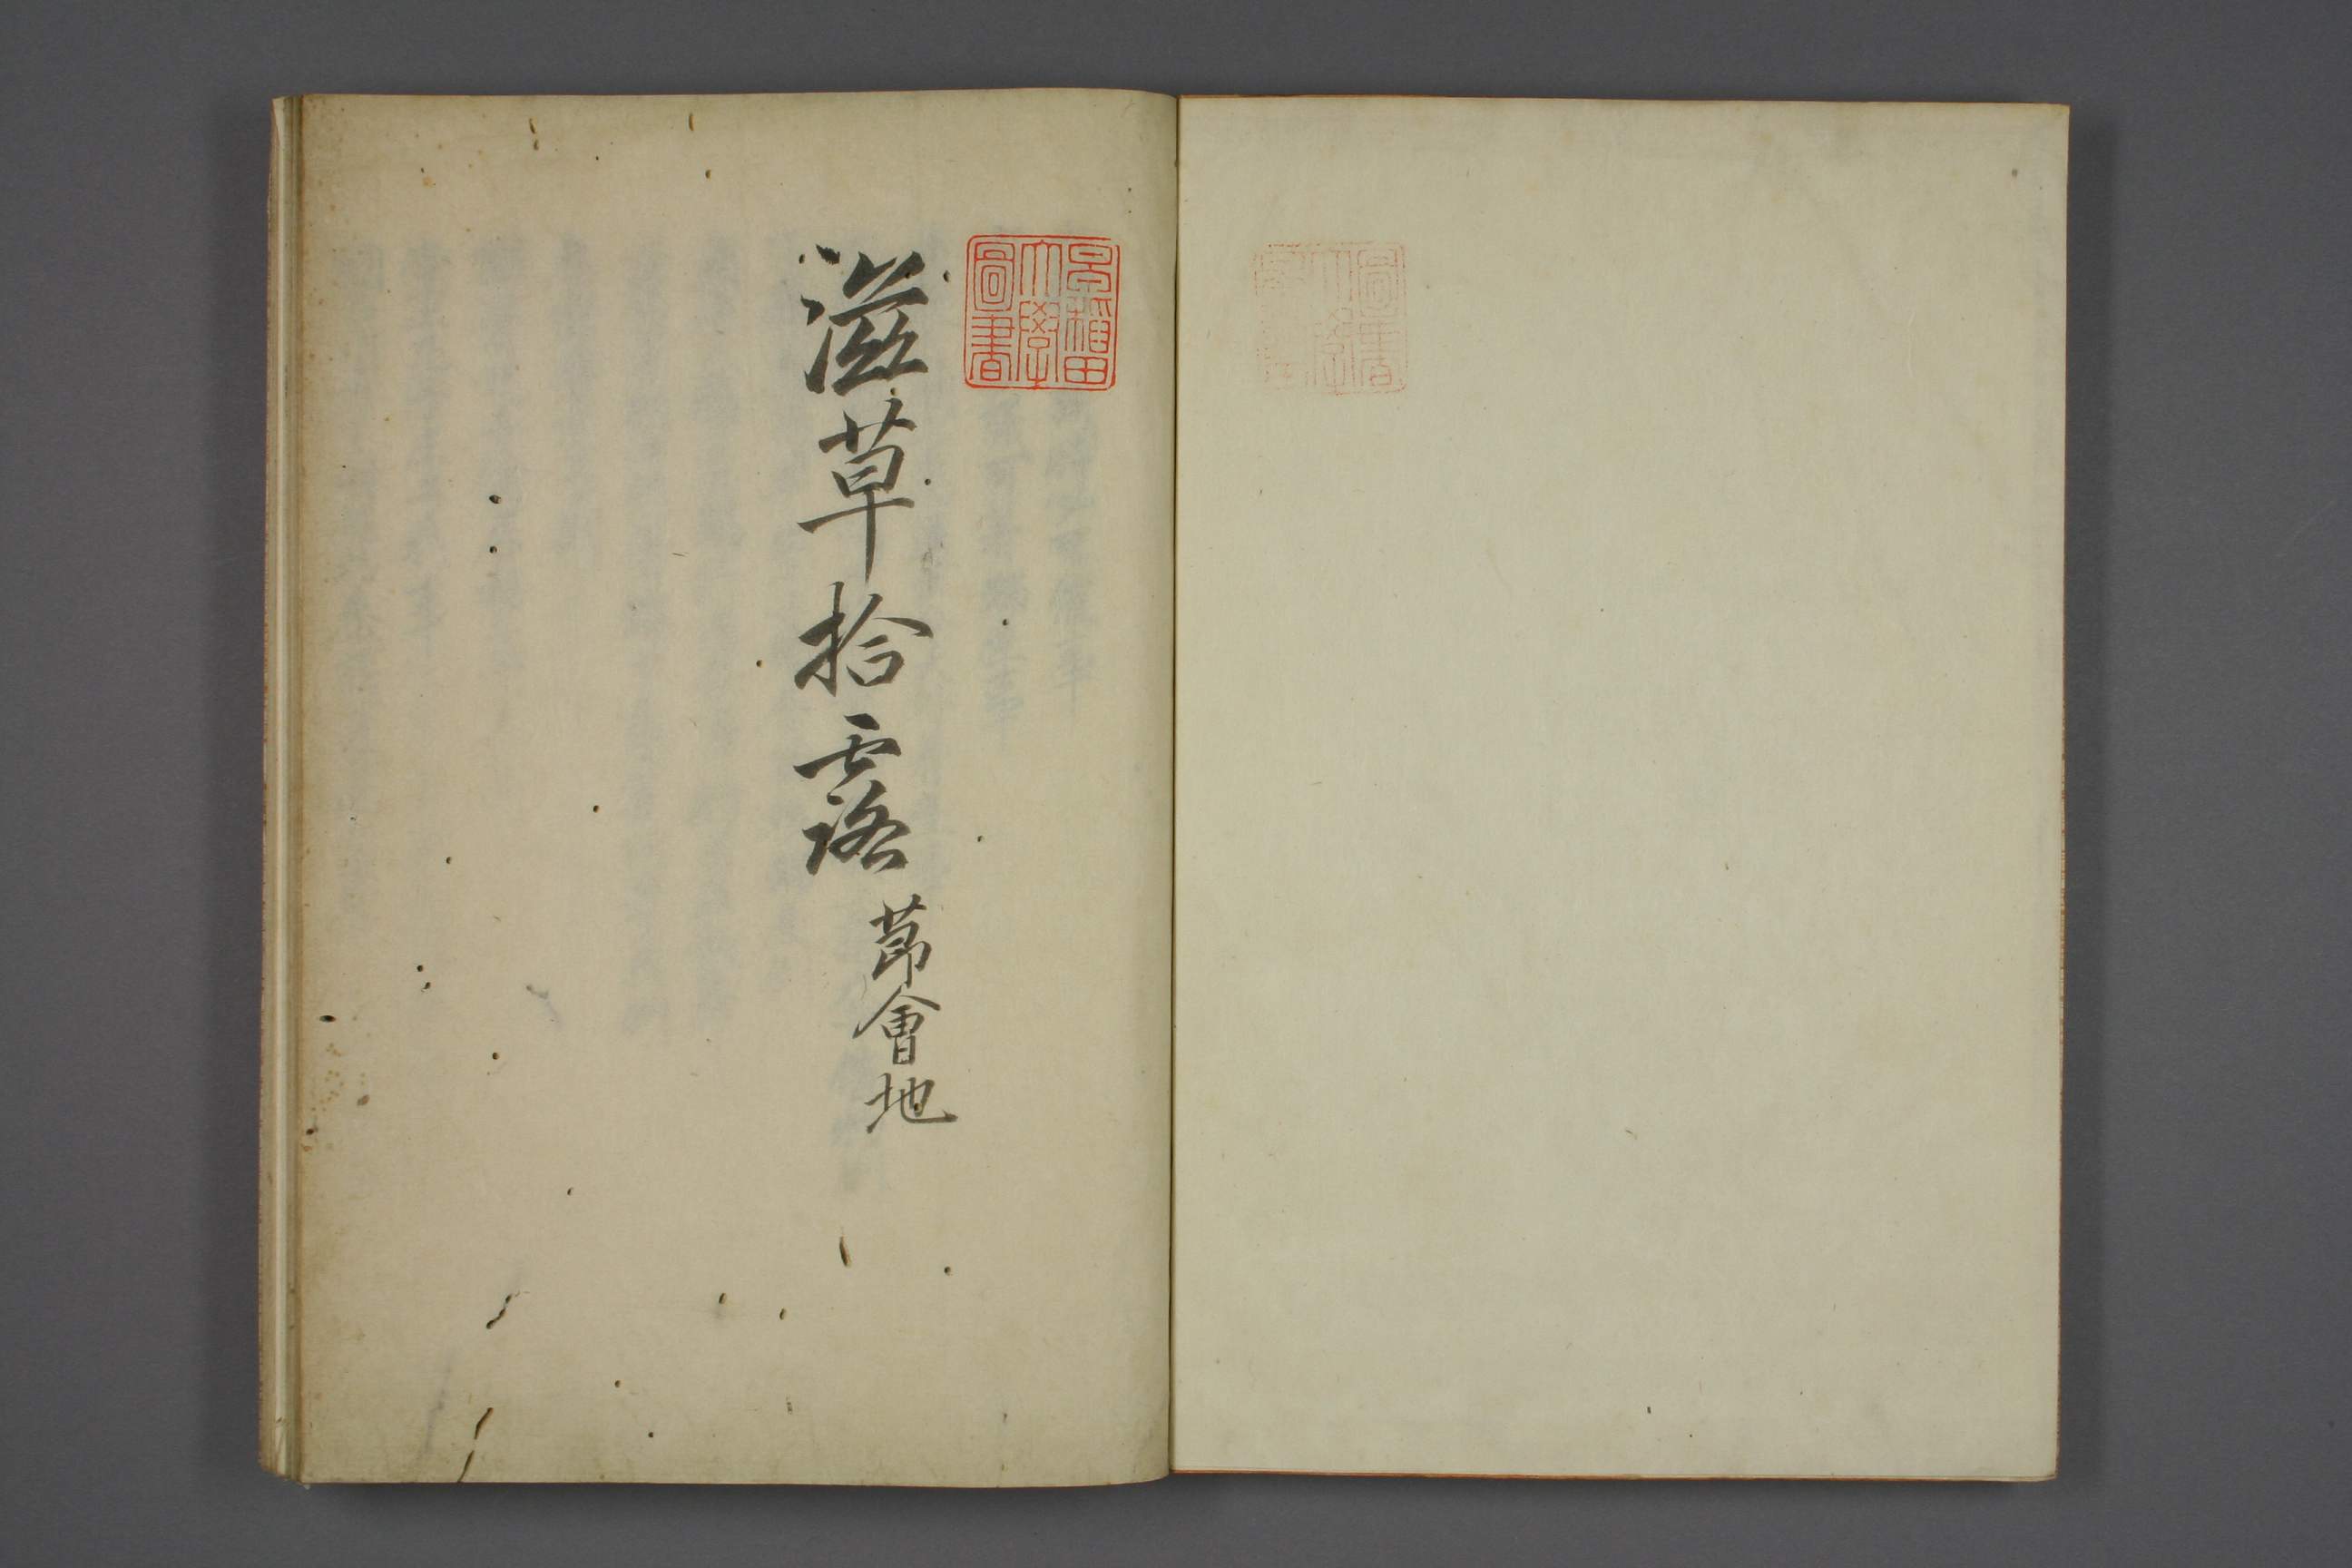 早稲田
大學
圖書
滋草拾露 莭會地